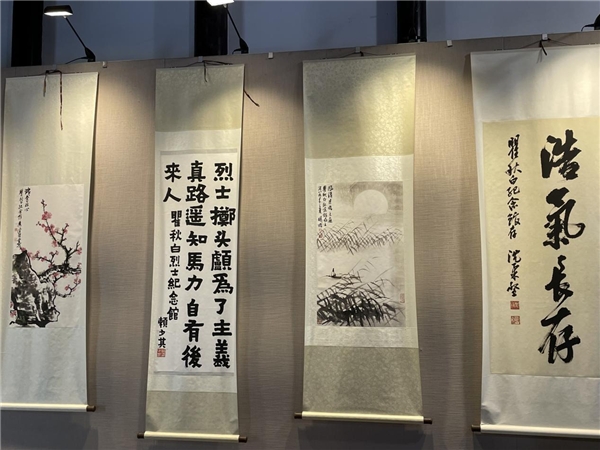 烈士擲头顱爲了主義
真路遥知馬力自有後
来人
瞿秋白烈士紀念館
賴少其
浩氣長存
瞿秋白纪念馆存
沈柔堅